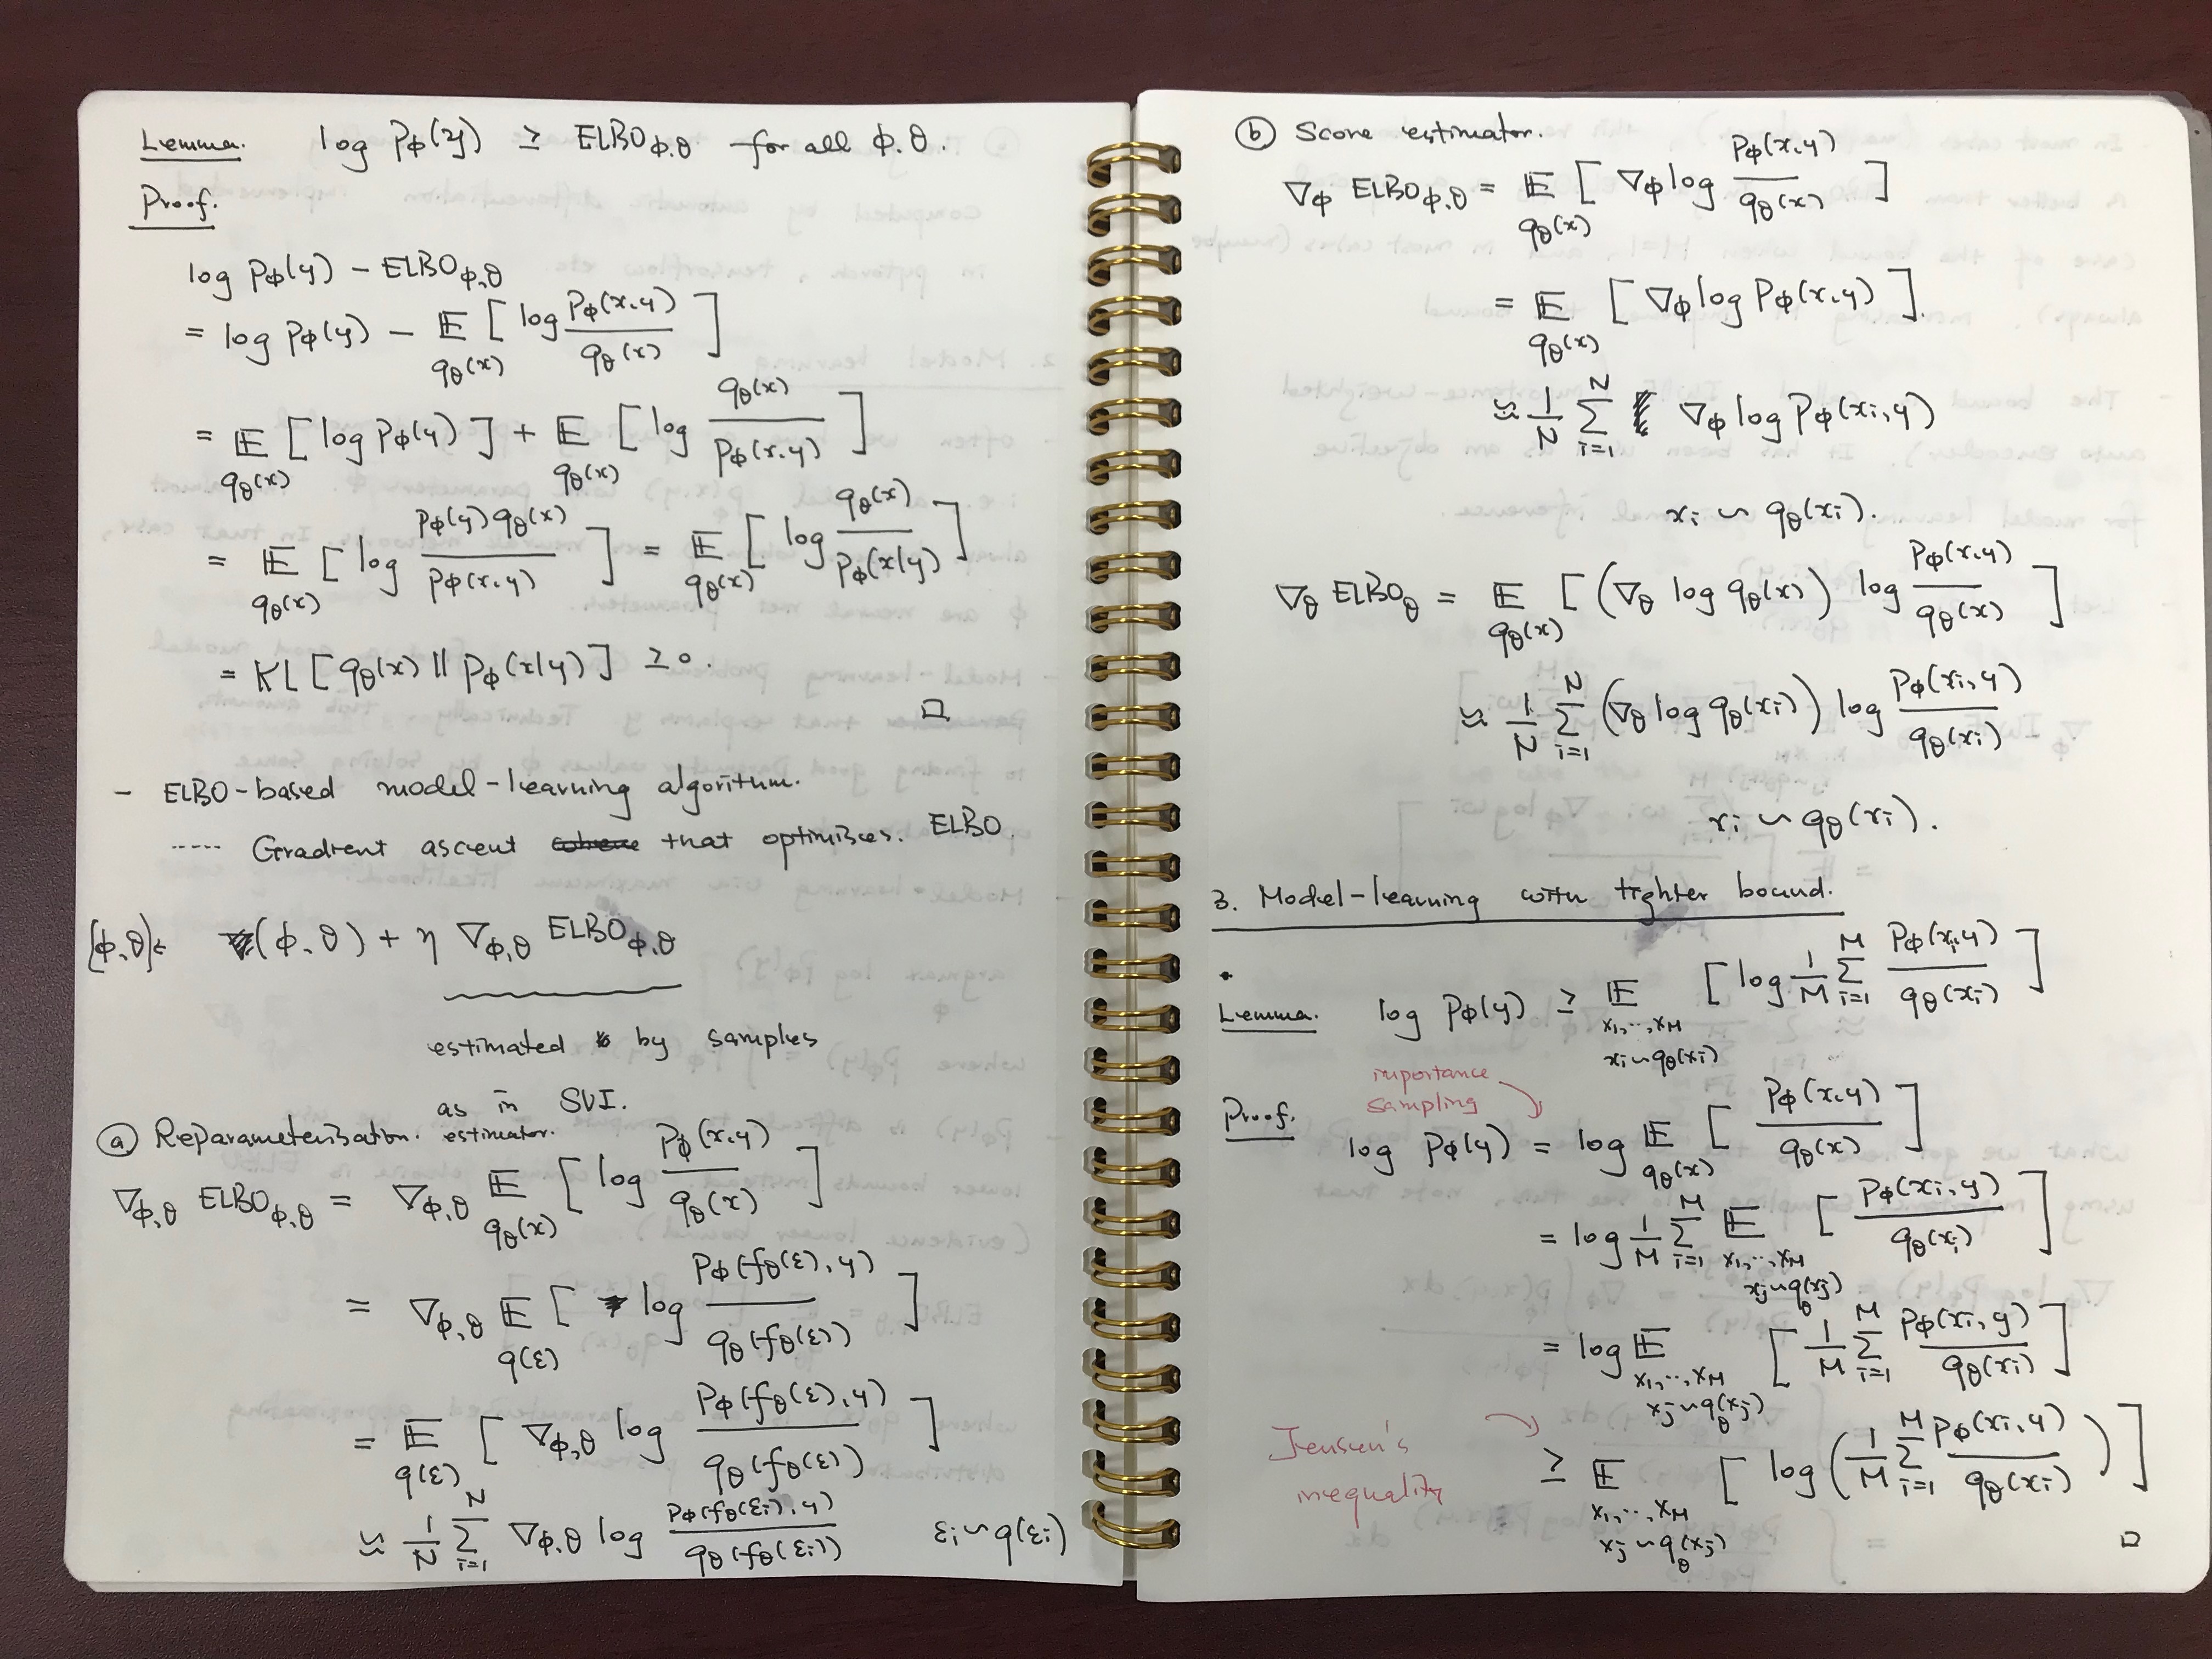 Lemma. log Pφ(y) ≥ ELBOφ,θ for all φ.θ.
Proof.
log Pφ(y) − ELBOφ,θ
= log Pφ(y) − 𝔼_{qθ(x)} [ log Pφ(x,y) / qθ(x) ]
= 𝔼_{qθ(x)} [ log Pφ(y) ] + 𝔼_{qθ(x)} [ log qθ(x) / Pφ(x,y) ]
= 𝔼_{qθ(x)} [ log Pφ(y) qθ(x) / Pφ(x,y) ] = 𝔼_{qθ(x)} [ log qθ(x) / Pφ(x|y) ]
= KL [ qθ(x) || Pφ(x|y) ] ≥ 0.
□
- ELBO-based model-learning algorithm.
----- Gradient ascent that optimises. ELBO.
(φ,θ) ← (φ,θ) + η ∇φ,θ ELBOφ,θ
estimated by samples
as in SVI.
ⓐ Reparameterisation. estimator.
∇φ,θ ELBOφ,θ = ∇φ,θ 𝔼_{qθ(x)} [ log Pφ(x,y) / qθ(x) ]
= ∇φ,θ 𝔼_{q(ε)} [ log Pφ(fθ(ε),y) / qθ(fθ(ε)) ]
= 𝔼_{q(ε)} [ ∇φ,θ log Pφ(fθ(ε),y) / qθ(fθ(ε)) ]
≈ 1/N Σ_{i=1}^{N} ∇φ,θ log Pφ(fθ(εi),y) / qθ(fθ(εi)) εi ~ q(εi)
ⓑ Score estimator.
∇φ ELBOφ,θ = 𝔼_{qθ(x)} [ ∇φ log Pφ(x,y) / qθ(x) ]
= 𝔼_{qθ(x)} [ ∇φ log Pφ(x,y) ].
≈ 1/N Σ_{i=1}^{N} ∇φ log Pφ(xi,y)
xi ~ qθ(xi).
∇θ ELBOθ = 𝔼_{qθ(x)} [ (∇θ log qθ(x)) log Pφ(x,y) / qθ(x) ]
≈ 1/N Σ_{i=1}^{N} (∇θ log qθ(xi)) log Pφ(xi,y) / qθ(xi)
xi ~ qθ(xi).
3. Model-learning with tighter bound.
Lemma. log Pφ(y) ≥ 𝔼_{x1,...,xM xi~qθ(xi)} [ log 1/M Σ_{i=1}^{M} Pφ(xi,y) / qθ(xi) ]
importance
sampling
Proof. log Pφ(y) = log 𝔼_{qθ(x)} [ Pφ(x,y) / qθ(x) ]
= log 1/M Σ_{i=1}^{M} 𝔼_{x1,...,xM xj~qθ(xj)} [ Pφ(xi,y) / qθ(xi) ]
= log 𝔼_{x1,...,xM xj~qθ(xj)} [ 1/M Σ_{i=1}^{M} Pφ(xi,y) / qθ(xi) ]
Jensen's
inequality
≥ 𝔼_{x1,...,xM xj~qθ(xj)} [ log ( 1/M Σ_{i=1}^{M} Pφ(xi,y) / qθ(xi) ) ]
□